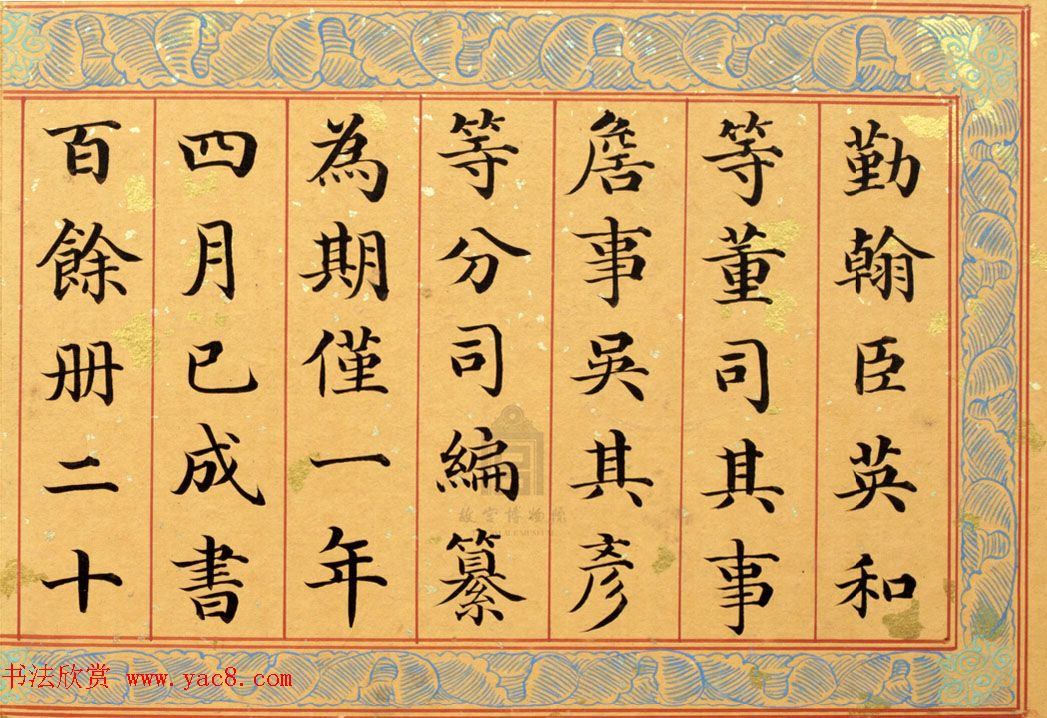 勤翰臣英和
等董司其事
詹事吳其彥
等分司編纂
為期僅一年
四月已成書
百餘册二十
故宫博物院
书法欣赏 www.yac8.com